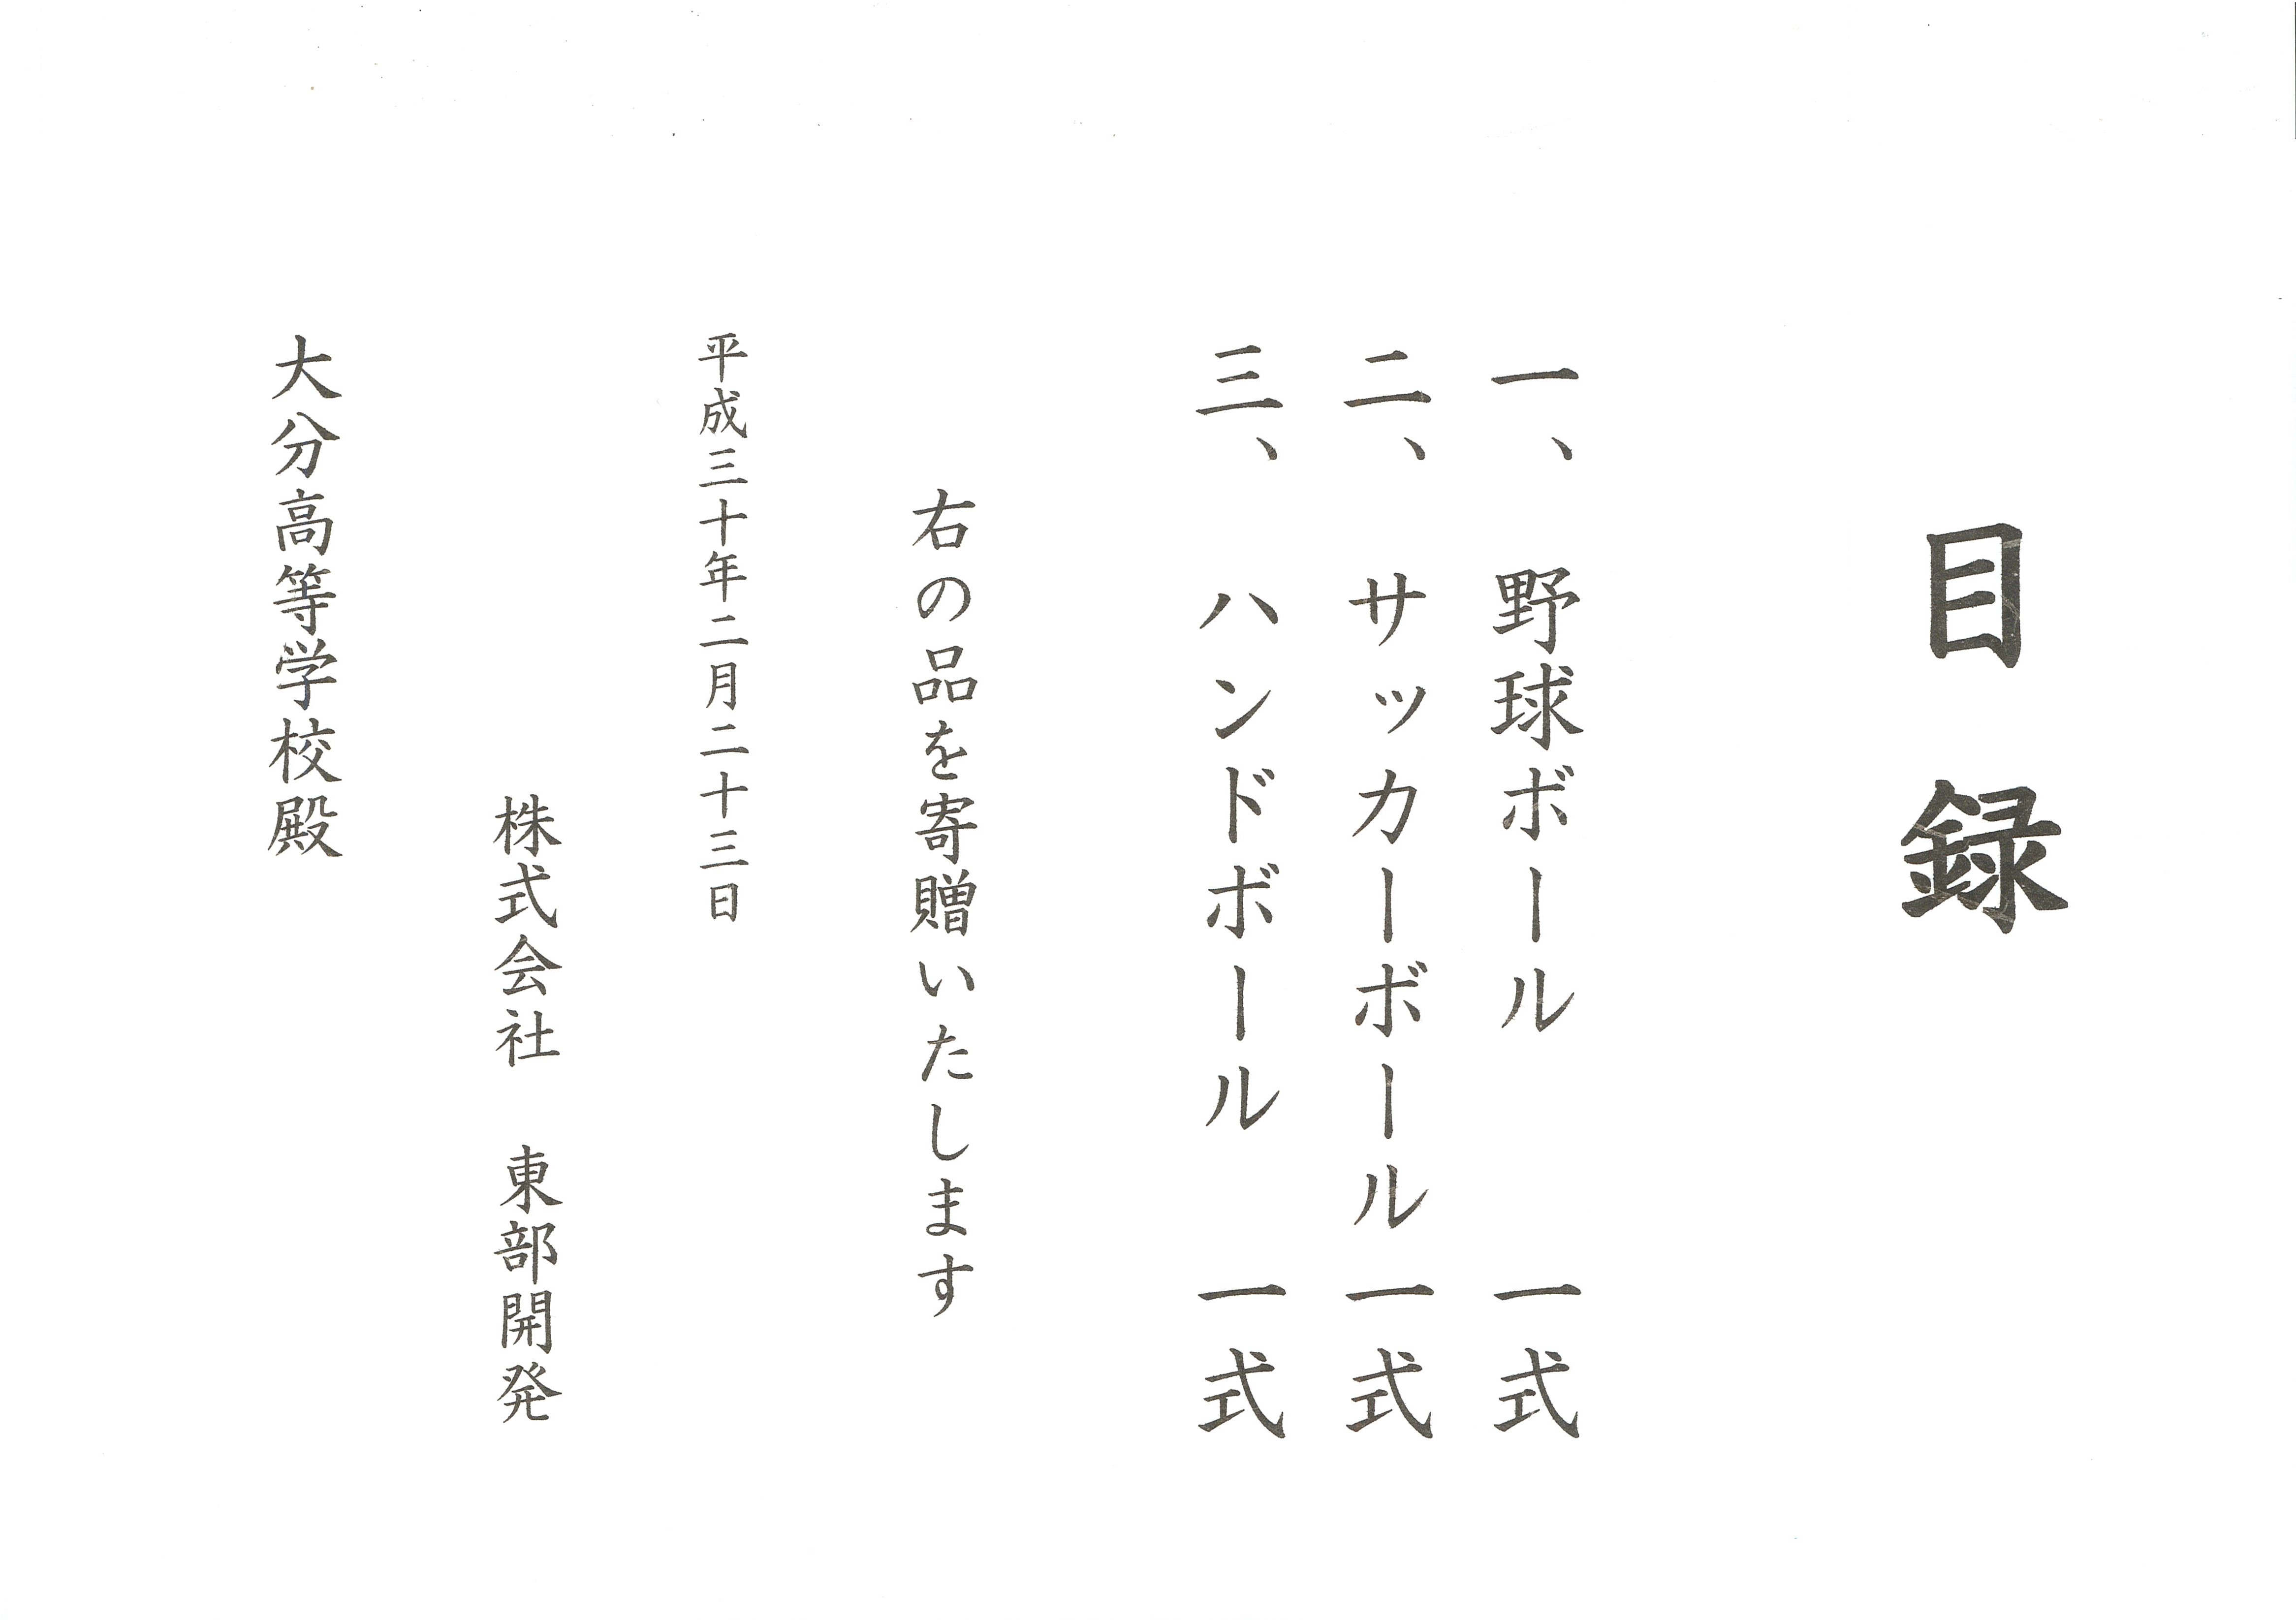 目録
一、 野球ボール 一式
二、 サッカーボール 一式
三、 ハンドボール 一式
右の品を寄贈いたします
平成三十年二月二十三日
株式会社 東部開発
大分高等学校殿